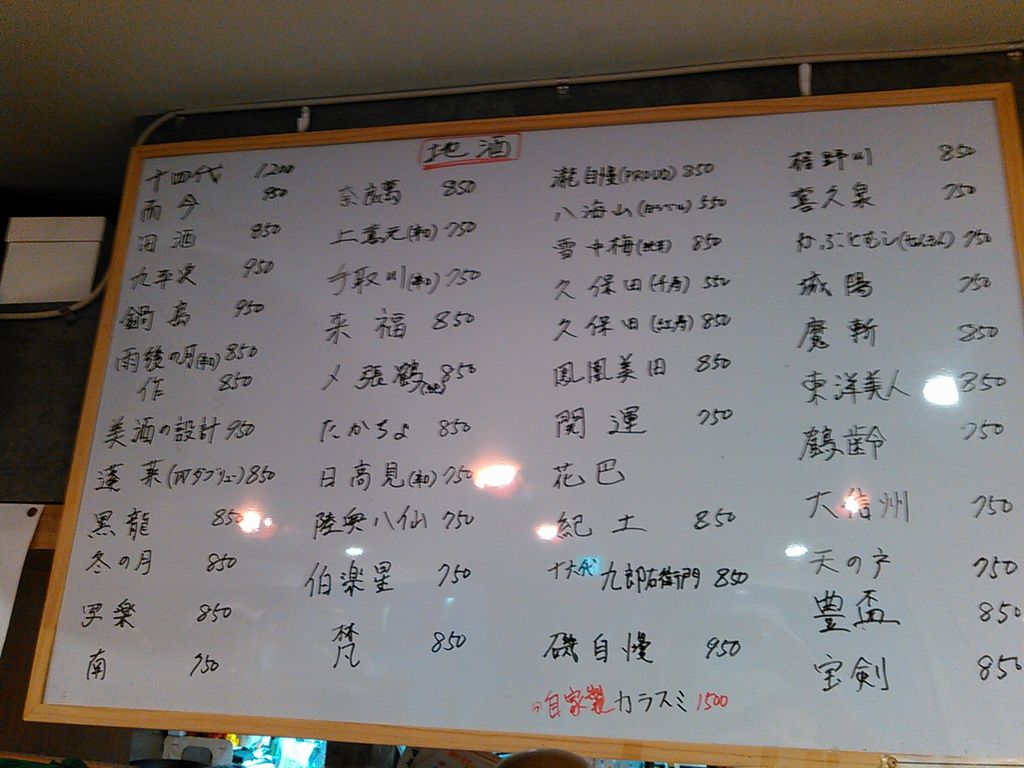 地酒
十四代 1200
而今 850
田酒 850
九平次 950
鍋島 950
雨後の月(和) 850
作 850
美酒の設計 950
蓬莱(Wダブリュー) 850
黒龍 850
冬の月 850
写楽 850
南 750
奈良萬 850
上喜元(和) 750
手取川(和) 750
来福 850
〆張鶴(純) 850
たかちよ 850
日高見(和) 750
陸奥八仙 750
伯楽星 750
梵 850
瀧自慢(PROUD) 850
八海山 550
雪中梅 850
久保田(千寿) 550
久保田(紅寿) 850
鳳凰美田 850
開運 750
花巴
紀土 850
十六代九郎右衛門 850
磯自慢 950
自家製カラスミ 1500
綿野川 850
喜久泉 750
かぶとむし(せんきん) 750
城陽 750
魔斬 850
東洋美人 850
鶴齢 750
大信州 750
天の戸 750
豊盃 850
宝剣 850